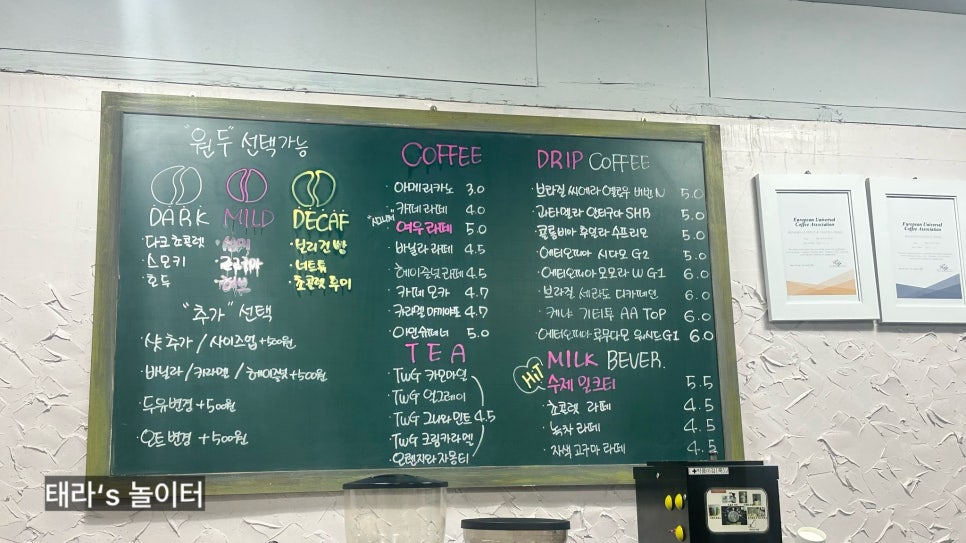 "원두" 선택가능
DARK MILD DECAF
· 다크초콜렛
· 스모키
· 호두
· 너트류
"추가" 선택
· 샷 추가 / 사이즈업 +500원
· 바닐라 / 카라멜 / 헤이즐넛 +500원
· 두유변경 +500원
· 오트변경 +500원
COFFEE
· 아메리카노 3.0
· 카페라떼 4.0
여우라떼 5.0
· 바닐라 라떼 4.5
· 헤이즐넛 라떼 4.5
· 카페모카 4.7
· 카라멜 마끼아또 4.7
· 아인슈페너 5.0
TEA
· TWG 카모마일
· TWG 얼그레이
· TWG 그나와 민트 4.5
· TWG 크림카라멜
· 오렌지와 자몽티
DRIP COFFEE
· 브라질 옐로우 버번 N 5.0
· 과테말라 안티구아 SHB 5.0
· 콜롬비아 후일라 수프리모 5.0
· 에티오피아 시다모 G2 5.0
· 에티오피아 W G1 6.0
· 브라질 세라도 디카페인 6.0
· 케냐 키타투 AA TOP 6.0
· 에티오피아 워시드 G1 6.0
HiT
MILK BEVER.
수제 밀크티 5.5
· 초콜렛 라떼 4.5
· 녹차 라떼 4.5
· 자색 고구마 라떼 4.5
European Universal
Coffee Association
European Universal
Coffee Association
태라's 놀이터